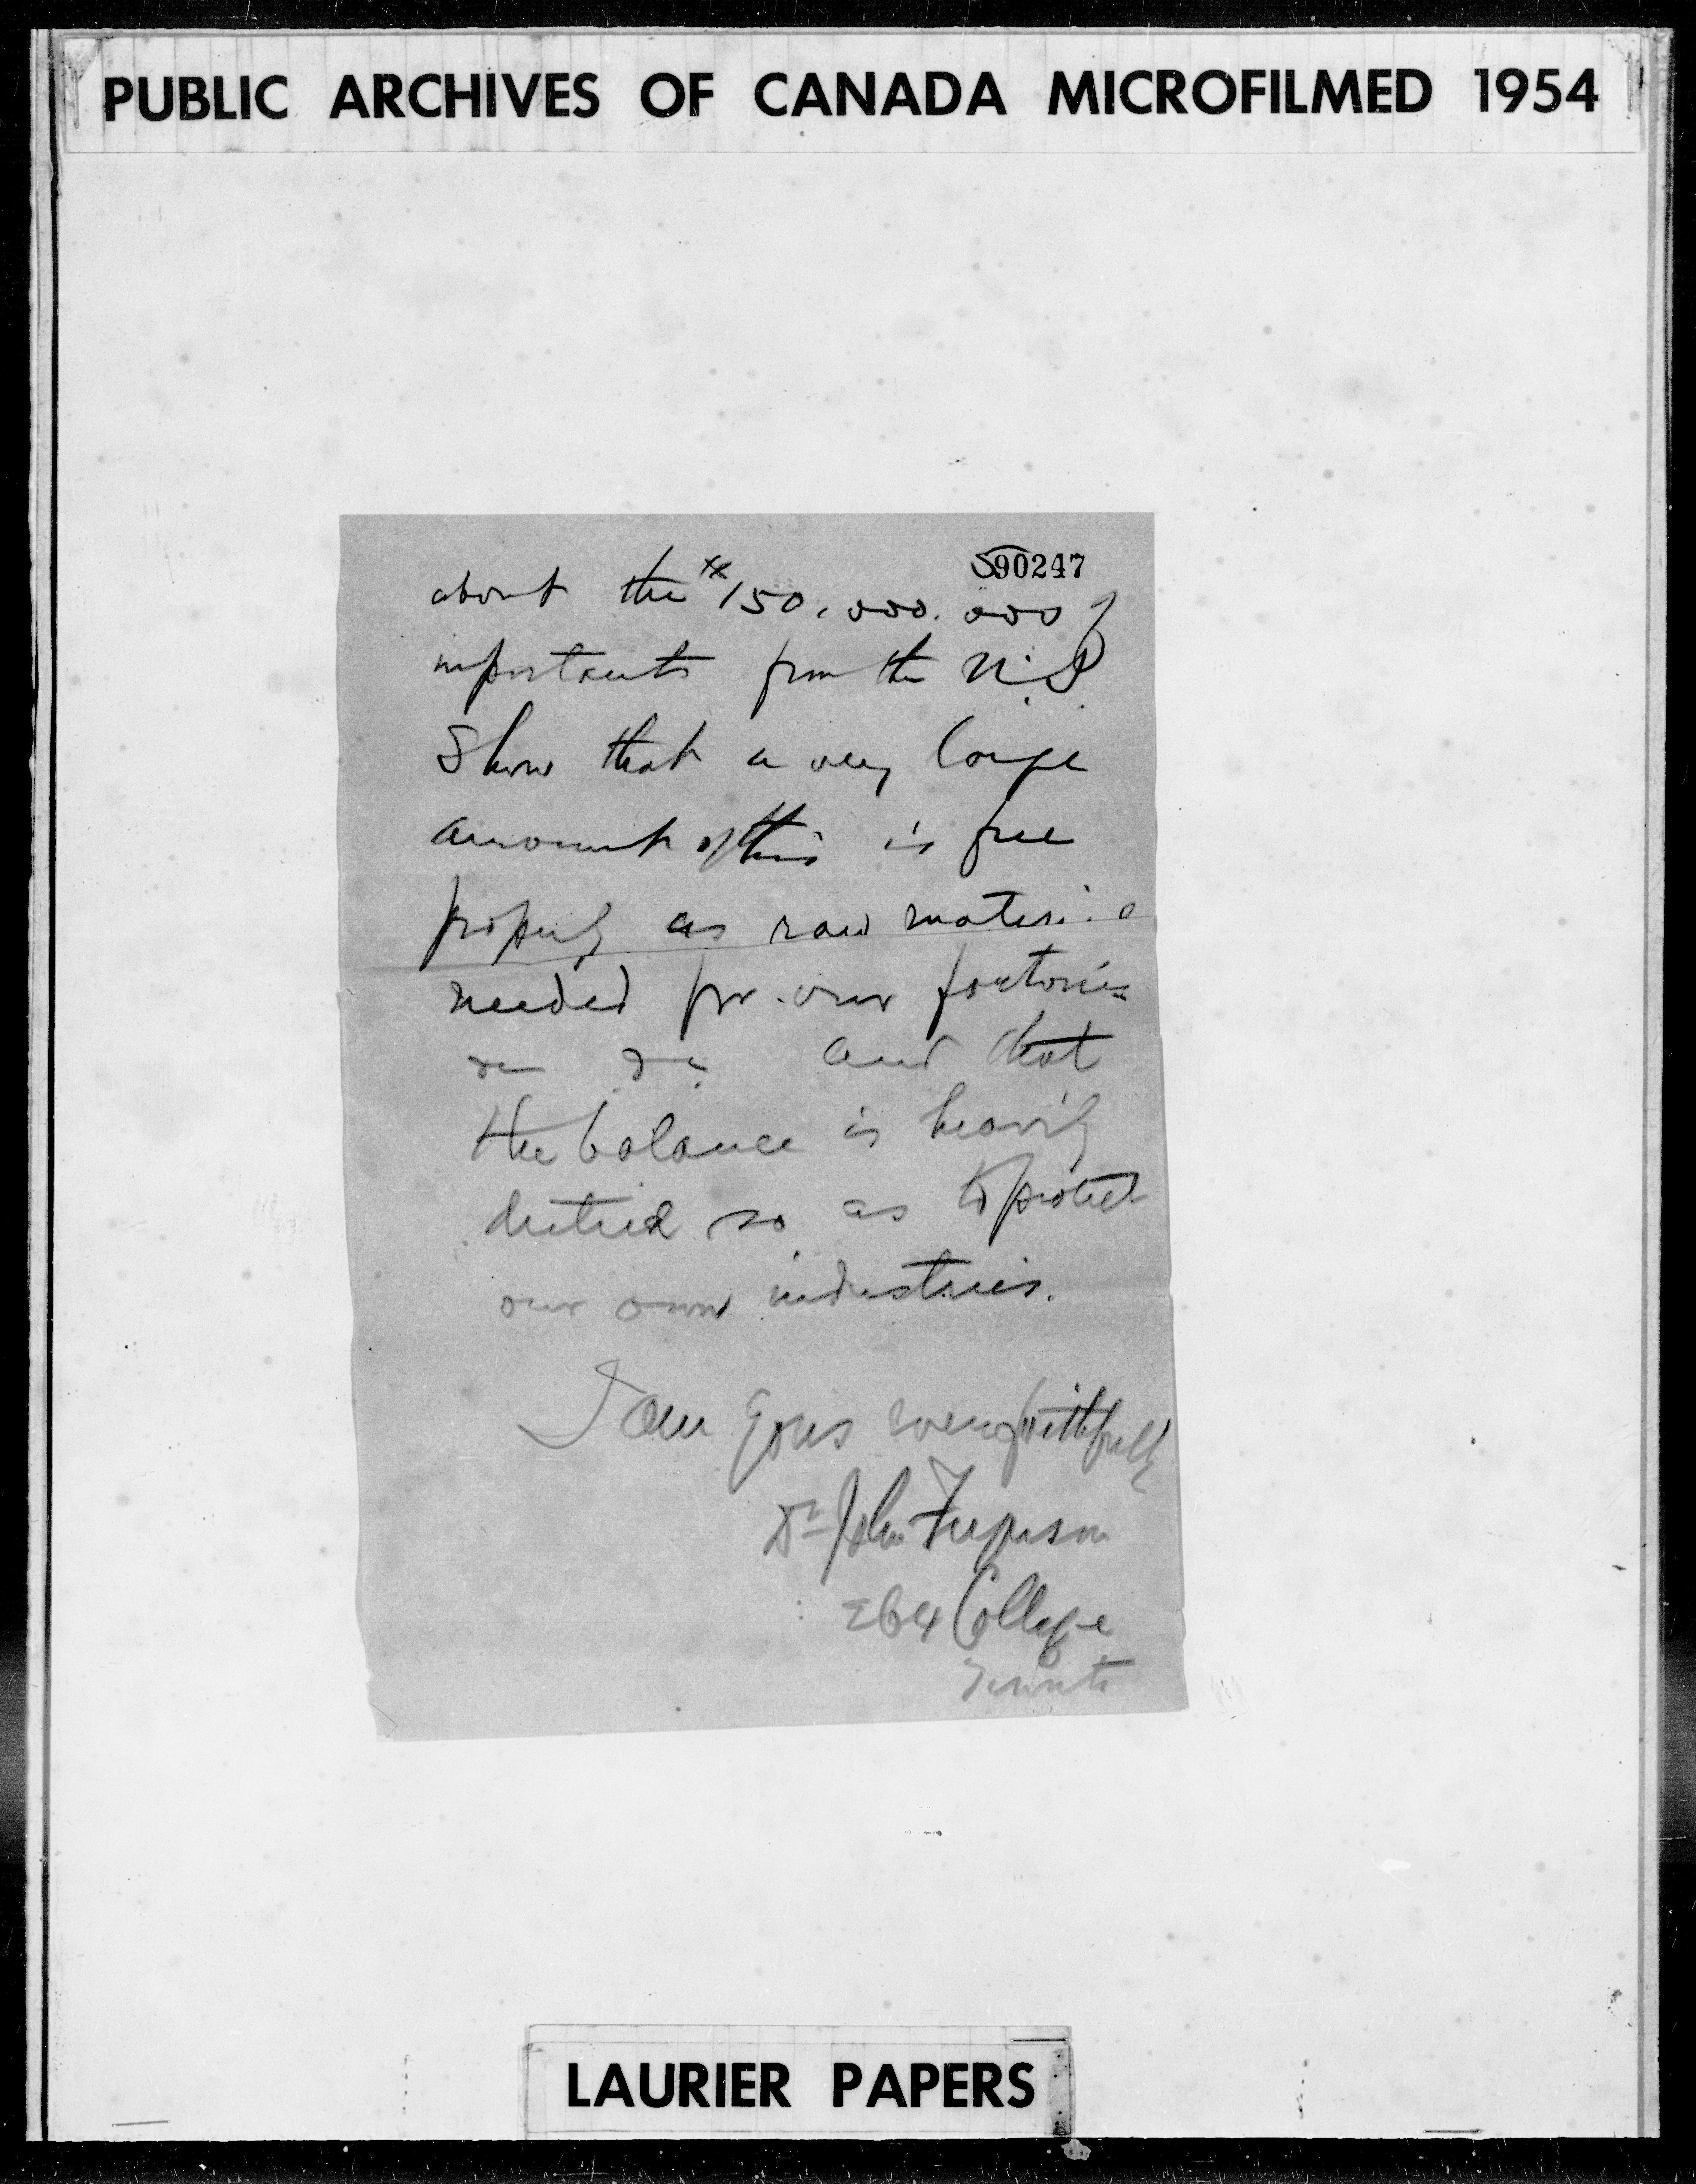 PUBLIC ARCHIVES OF CANADA MICROFILMED 1954
590247
about the $150,000.000 of
importants from the U.S.
Show that a very large
amount of this is free
properly as raw material
needed for our factories
and that
the balance is heavily
dutied so as to protect
our own industries.
I am yours very faithfully
Dr John Ferguson
264 College
Toronto
LAURIER PAPERS